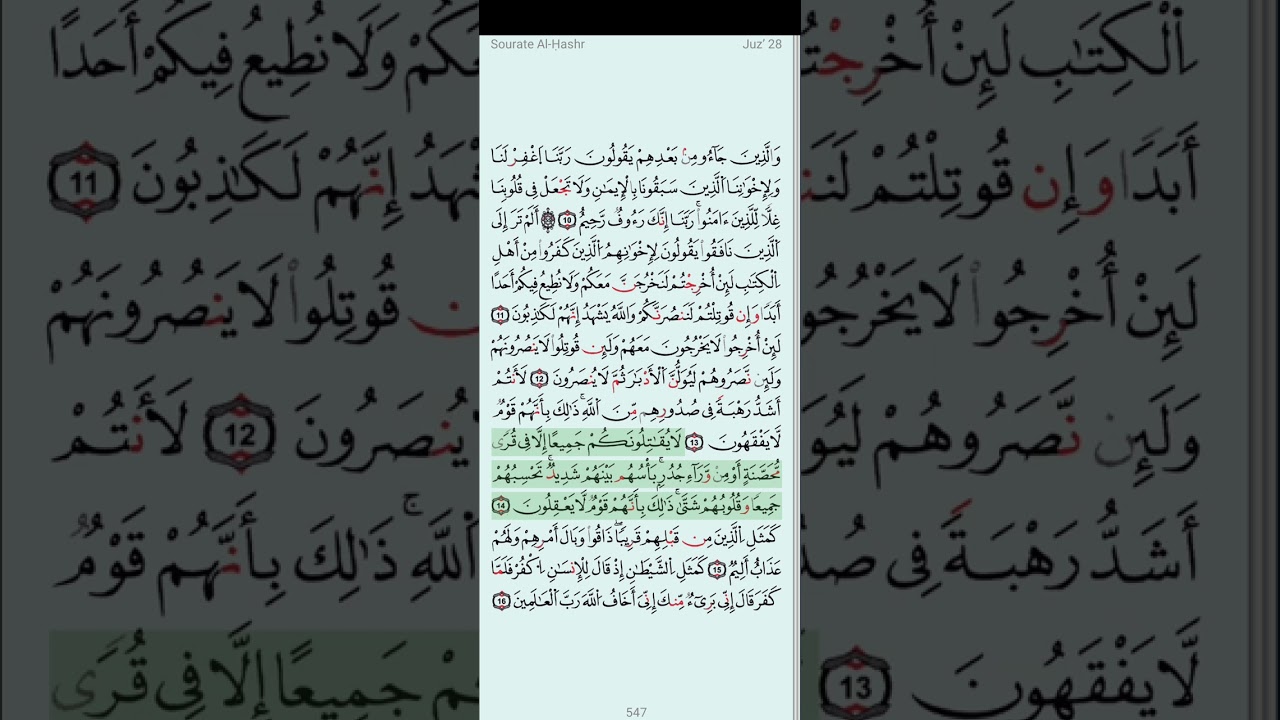 Sourate Al-Ḥashr
Juz’ 28
وَالَّذِينَ جَآءُو مِنۢ بَعْدِهِمْ يَقُولُونَ رَبَّنَا اَغْفِرْ لَنَا
وَلِإِخْوَٰنِنَا اَلَّذِينَ سَبَقُونَا بِالْإِيمَٰنِ وَلَا تَجْعَلْ فِى قُلُوبِنَا
غِلًّا لِّلَّذِينَ ءَامَنُوا۟ رَبَّنَآ إِنَّكَ رَءُوفٌ رَّحِيمٌ 10 ۞ أَلَمْ تَرَ إِلَى
اَلَّذِينَ نَافَقُوا۟ يَقُولُونَ لِإِخْوَٰنِهِمُ اَلَّذِينَ كَفَرُوا۟ مِنْ أَهْلِ
اِلْكِتَٰبِ لَئِنْ أُخْرِجْتُمْ لَنَخْرُجَنَّ مَعَكُمْ وَلَا نُطِيعُ فِيكُمْ أَحَدًا
أَبَدًا وَإِن قُوتِلْتُمْ لَنَنصُرَنَّكُمْ وَاللَّهُ يَشْهَدُ إِنَّهُمْ لَكَٰذِبُونَ 11
لَئِنْ أُخْرِجُوا۟ لَا يَخْرُجُونَ مَعَهُمْ وَلَئِن قُوتِلُوا۟ لَا يَنصُرُونَهُمْ
وَلَئِن نَّصَرُوهُمْ لَيُوَلُّنَّ اَلْأَدْبَٰرَ ثُمَّ لَا يُنصَرُونَ 12 لَأَنتُمْ
أَشَدُّ رَهْبَةً فِى صُدُورِهِم مِّنَ اَللَّهِ ذَٰلِكَ بِأَنَّهُمْ قَوْمٌ
لَّا يَفْقَهُونَ 13 لَا يُقَٰتِلُونَكُمْ جَمِيعًا إِلَّا فِى قُرًى
مُّحَصَّنَةٍ أَوْ مِن وَّرَآءِ جُدُرٍ بَأْسُهُم بَيْنَهُمْ شَدِيدٌ تَحْسِبُهُمْ
جَمِيعًا وَقُلُوبُهُمْ شَتَّىٰ ذَٰلِكَ بِأَنَّهُمْ قَوْمٌ لَّا يَعْقِلُونَ 14
كَمَثَلِ اِلَّذِينَ مِن قَبْلِهِمْ قَرِيبًا ذَاقُوا۟ وَبَالَ أَمْرِهِمْ وَلَهُمْ
عَذَابٌ أَلِيمٌ 15 كَمَثَلِ اِلشَّيْطَٰنِ إِذْ قَالَ لِلْإِنسَٰنِ اِكْفُرْ فَلَمَّا
كَفَرَ قَالَ إِنِّى بَرِىٓءٌ مِّنكَ إِنِّىٓ أَخَافُ اَللَّهَ رَبَّ اَلْعَٰلَمِينَ 16
547